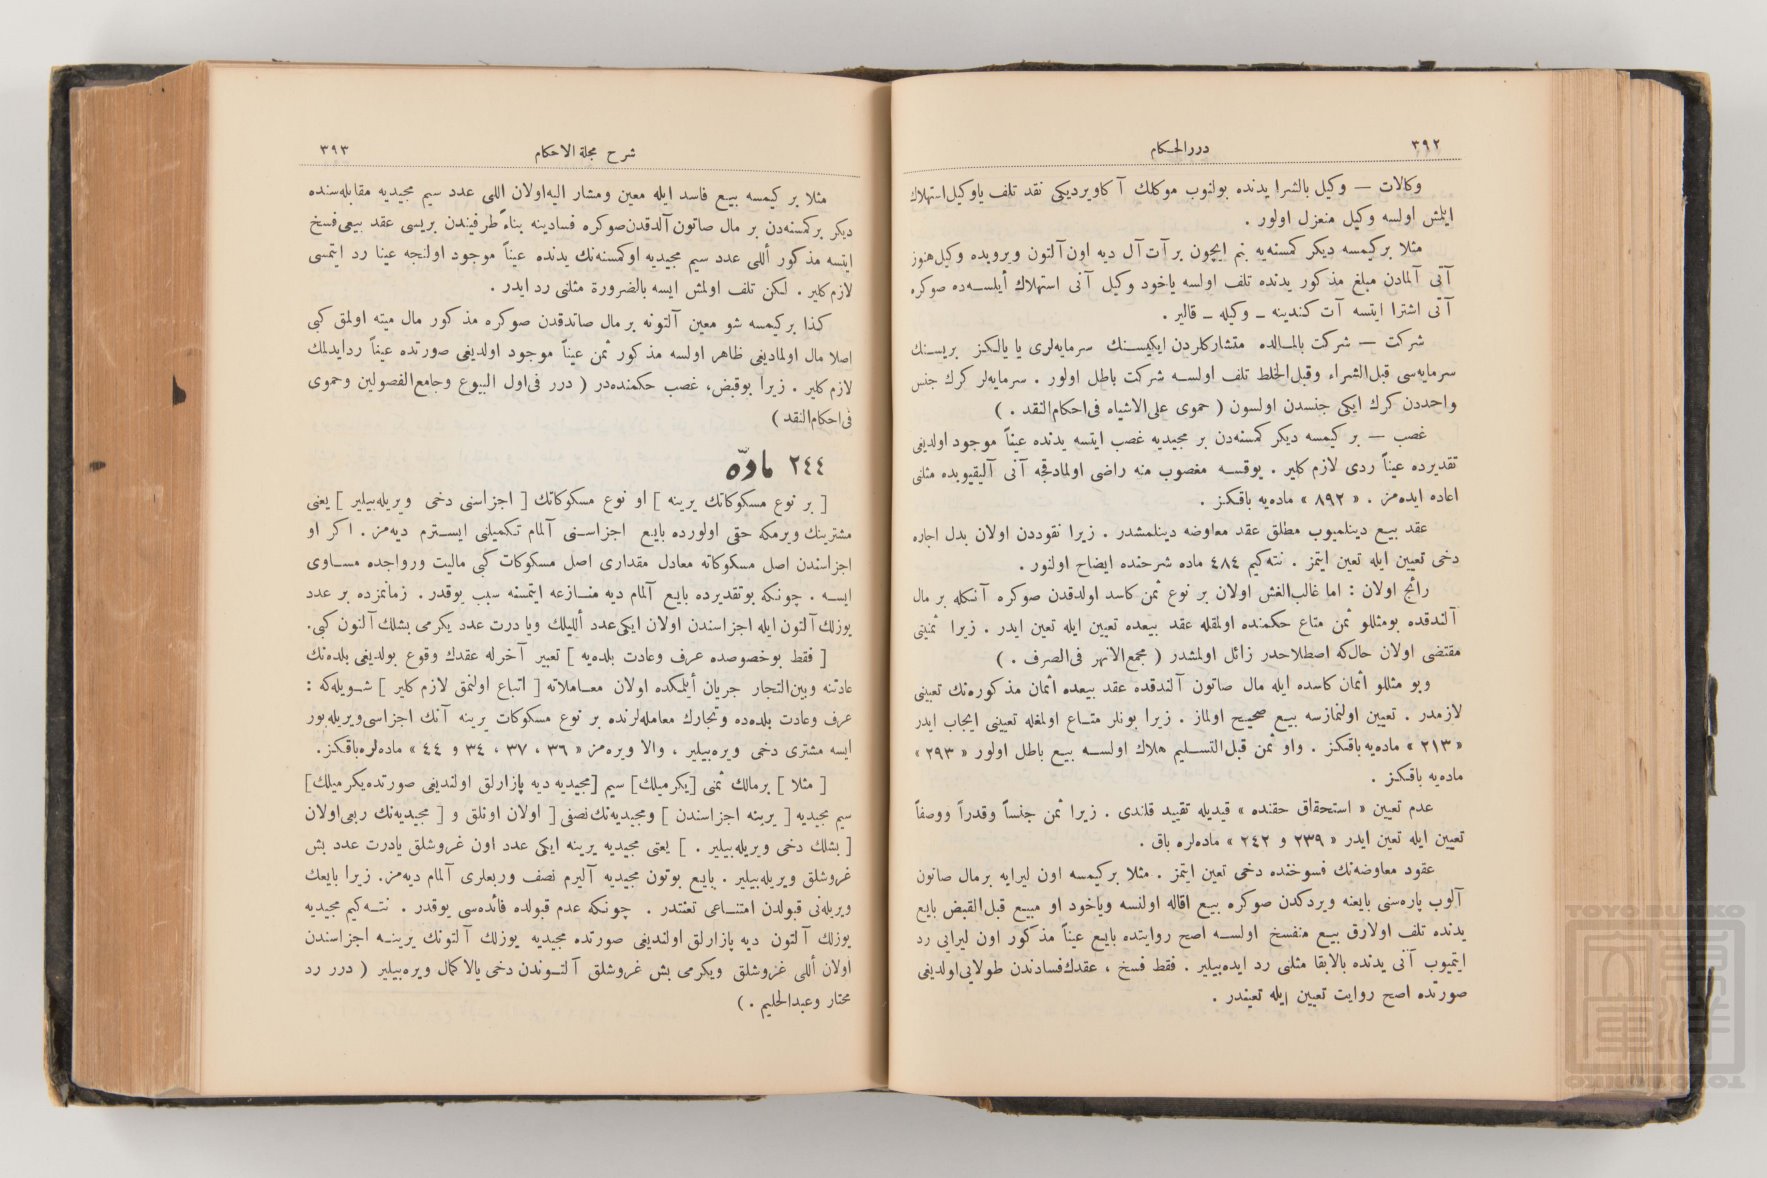 ٣٩٢
دررالحكام
وكالات — وكيل بالشرا يدنده بولنوب موكلك آكاويرديكى نقد تلف ياوكيل استهلاك
ايلمش اولسه وكيل منعزل اولور .
مثلا بركيمسه ديكر كمسنه‌يه بنم ايچون بر آت آل ديه اون آلتون ويروبده وكيل هنوز
آتى آلمادن مبلغ مذكور يدنده تلف اولسه ياخود وكيل آنى استهلاك أيلسه‌ده صوكره
آتى اشترا ايتسه آت كندينه ـ وكيله ـ قالير .
شركت — شركت بالمالده متشاركلردن ايكيسنك سرمايه‌لرى يا يالكز بريسنك
سرمايه‌سى قبل‌الشراء وقبل‌الخلط تلف اولسه شركت باطل اولور . سرمايه‌لر كرك جنس
واحددن كرك ايكى جنسدن اولسون ( حموى على‌الاشباه فى‌احكام‌النقد . )
غصب — بر كيمسه ديكر كمسنه‌دن بر مجيديه غصب ايتسه يدنده عيناً موجود اولديغى
تقديرده عيناً ردى لازم كلير . يوقسه مغصوب منه راضى اولمادقجه آنى آليقيوبده مثلنى
اعاده ايده‌مز . « ٨٩٢ » ماده‌يه باقكز .
عقد بيع دينلميوب مطلق عقد معاوضه دينلمشدر . زيرا نقوددن اولان بدل اجاره
دخى تعيين ايله تعين ايتمز . نته‌كيم ٤٨٤ ماده شرحنده ايضاح اولنور .
رائج اولان : اما غالب‌الغش اولان بر نوع ثمن كاسد اولدقدن صوكره آنكله بر مال
آلندقده بومثللو ثمن متاع حكمنده اولمقله عقد بيعده تعيين ايله تعين ايدر . زيرا ثمنيتى
مقتضى اولان حال‌كه اصطلاحدر زائل اولمشدر ( مجمع‌الانهر فى‌الصرف . )
وبو مثللو اثمان كاسده ايله مال صاتون آلندقده عقد بيعده اثمان مذكوره‌نك تعيينى
لازمدر . تعيين اولنمازسه بيع صحيح اولماز . زيرا بونلر متاع اولمغله تعيينى ايجاب ايدر
« ٢١٣ » ماده‌يه باقكز . واو ثمن قبل‌التسليم هلاك اولسه بيع باطل اولور « ٢٩٣ »
ماده‌يه باقكز .
عدم تعيين « استحقاق حقنده » قيديله تقييد قلندى . زيرا ثمن جنساً وقدراً ووصفاً
تعيين ايله تعين ايدر « ٢٣٩ و ٢٤٢ » ماده‌لره باق .
عقود معاوضه‌نك فسوخنده دخى تعين ايتمز . مثلا بركيمسه اون ليرايه برمال صاتون
آلوب پاره‌سنى بايعنه ويردكدن صوكره بيع اقاله اولنسه وياخود او مبيع قبل‌القبض بايع
يدنده تلف اولارق بيع منفسخ اولسه اصح روايتده بايع عيناً مذكور اون ليرايى رد
ايتميوب آنى يدنده بالابقا مثلنى رد ايده‌بيلير . فقط فسخ ، عقدك‌فسادندن طولايى‌اولديغى
صورتده اصح روايت تعيين ايله تعيندر .
شرح مجلة الاحكام
٣٩٣
مثلا بر كيمسه بيع فاسد ايله معين ومشار اليه‌اولان اللى عدد سيم مجيديه مقابله‌سنده
ديكر بركمسنه‌دن بر مال صاتون آلدقدن‌صوكره فسادينه بناءً طرفيندن بريسى عقد بيعى‌فسخ
ايتسه مذكور أللى عدد سيم مجيديه اوكمسنه‌نك يدنده عيناً موجود اولنجه عينا رد ايتمسى
لازم‌كلير . لكن تلف اولمش ايسه بالضرورة مثلنى رد ايدر .
كذا بركيمسه شو معين آلتونه بر مال صاتدقدن صوكره مذكور مال ميته اولمق كبى
اصلا مال اولماديغى ظاهر اولسه مذكور ثمن عيناً موجود اولديغى صورتده عيناً ردايدلمك
لازم‌كلير . زيرا بوقبض، غصب حكمنده‌در ( درر فى‌اول البيوع وجامع‌الفصولين وحموى
فى‌احكام‌النقد )
٢٤٤ مادّه
[ بر نوع مسكوكاتك يرينه ] او نوع مسكوكاتك [ اجزاسنى دخى ويريله‌بيلير ] يعنى
مشترينك ويرمكه حقى اولورده بايع اجزاسنى آلمام تكميلنى ايسترم ديه‌مز . اكر او
اجزاسندن اصل مسكوكاته معادل مقدارى اصل مسكوكات كبى ماليت ورواجده مساوى
ايسه . چونكه بوتقديرده بايع آلمام ديه منازعه ايتمسنه سبب يوقدر . زمانمزده بر عدد
يوزلك آلتون ايله اجزاسندن اولان ايكى‌عدد ألليلك ويا درت عدد يكرمى بشلك آلتون كبى.
[ فقط بوخصوصده عرف وعادت بلده‌يه ] تعبير آخرله عقدك وقوع بولديغى بلده‌نك
عادتنه وبين‌التجار جريان أيلمكده اولان معاملاته [ اتباع اولنمق لازم كلير ] شويله‌كه :
عرف وعادت بلده‌ده وتجارك معامله‌لرنده بر نوع مسكوكات يرينه آنك اجزاسى‌ويريله‌يور
ايسه مشترى دخى ويره‌بيلير ، والا ويره‌مز « ٣٦ ، ٣٧ ، ٣٤ و ٤٤ » ماده‌لره‌باقكز.
[ مثلا ] برمالك ثمنى [يكرميلك] سيم [مجيديه ديه پازارلق اولنديغى صورتده‌يكرميلك]
سيم مجيديه [ يرينه اجزاسندن ] ومجيديه‌نك‌نصفى [ اولان اونلق و [ مجيديه‌نك ربعى‌اولان
[ بشلك دخى ويريله‌بيلير . ] يعنى مجيديه يرينه ايكى عدد اون غروشلق يادرت عدد بش
غروشلق ويريله‌بيلير . بايع بوتون مجيديه آليرم نصف وربعلرى آلمام ديه‌مز. زيرا بايعك
ويريله‌نى قبولدن امتناعى تعنتدر . چونكه عدم قبولده فائده‌سى يوقدر . نته‌كيم مجيديه
يوزلك آلتون ديه پازارلق اولنديغى صورتده مجيديه يوزلك آلتونك يرينه اجزاسندن
اولان أللى غروشلق ويكرمى بش غروشلق آلتوندن دخى بالاكمال ويره‌بيلير ( درر رد
مختار وعبدالحليم . )
TOYO BUNKO
TOYO BUNKO